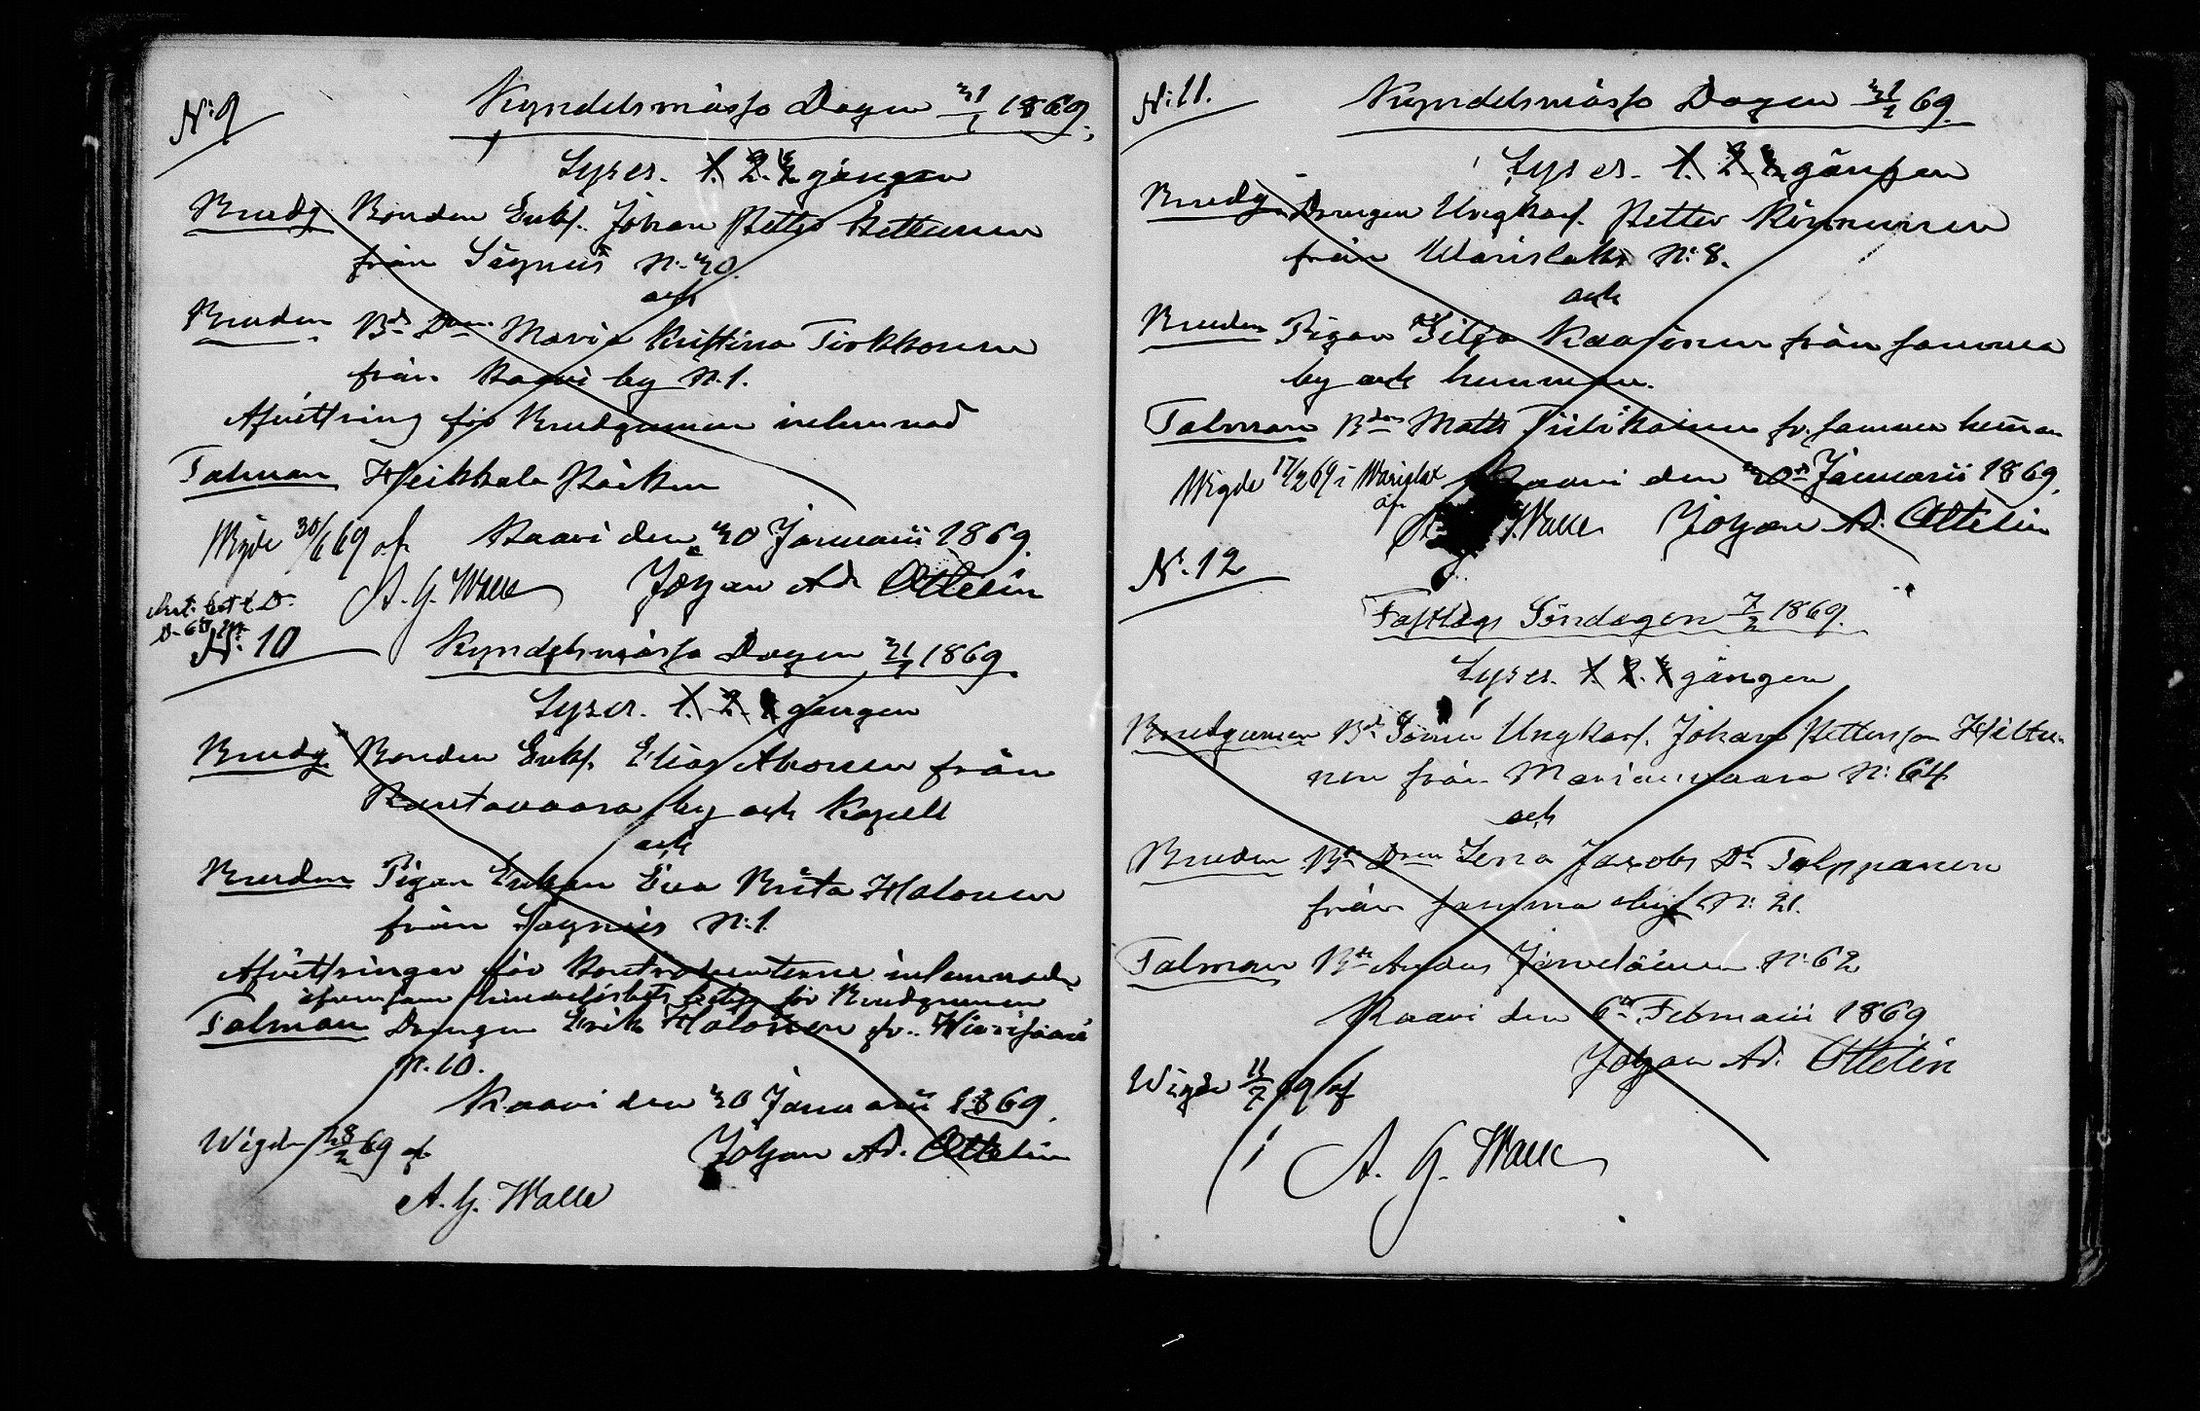 N:9
Kyndelsmässo Dagen 31/1 1869.
Lyses. 1. 2. 3 gången
Brudg. Bonden Enkl. Johan Petter Kettunen
från Sägnäs N: 30.
och
Bruden Bd Dran Maria Kristina Tirkkonen
från Kaavi by N:1.
Afvittring för Brudgumen inlemnad
Talman Heikkala Påcken
Wigde 30/6 69 af Kaavi den 30 Januarii 1869.
A. G. Walle Johan Ad. Ottelin
N: 10
Kyndelsmässo Dagen 31/1 1869.
Lyses. 1. 2. 3 gången
Brudg. Bonden Enkl. Elias Ahonen från
Rautavaara by och Kapell
och
Bruden Pigan Enkan Eva Brita Halonen
från Sägnäs N:1.
Afvittringar för Kontrahenterne inlemnade
äfvensom hinderlöshets betyg för Brudgumen
Talman Drengen Erik Halonen fr. Wiarisaari
N: 10.
Kaavi den 30 Januarii 1869.
Wigde 28/2 69 af Johan Ad. Ottelin
A. G. Walle
N: 11.
Kyndelsmässo Dagen 31/1 69.
Lyses. 1. 2. 3 gången
Brudg. Drengen Ungkarl. Petter Kinnunen
från Warislaks N: 8.
och
Bruden Pigan Silja Kaasinen från samma
by och hemman.
Talman Bden Matts Tiilikainen fr. samma heman
Wigde 17/2 69 i Warislax Kaavi den 30de Januarii 1869.
af A. G. Walle Johan Ad. Ottelin
N: 12
Fastlags Söndagen 7/2 1869.
Lyses. 1. 2. 3 gången
Brudgumen Bde Sonen Ungkarl. Johan Pettersson Hiltu-
nen från Marianvaara N: 64
och
Bruden Bde Dran Lena Jacobs Dr Tolppanen
från samma by N: 21.
Talman Bde Anders Järveläinen N: 62
Kaavi den 6te Februarii 1869
Johan Ad. Ottelin
Wigde 11/7 69 af
A. G. Walle